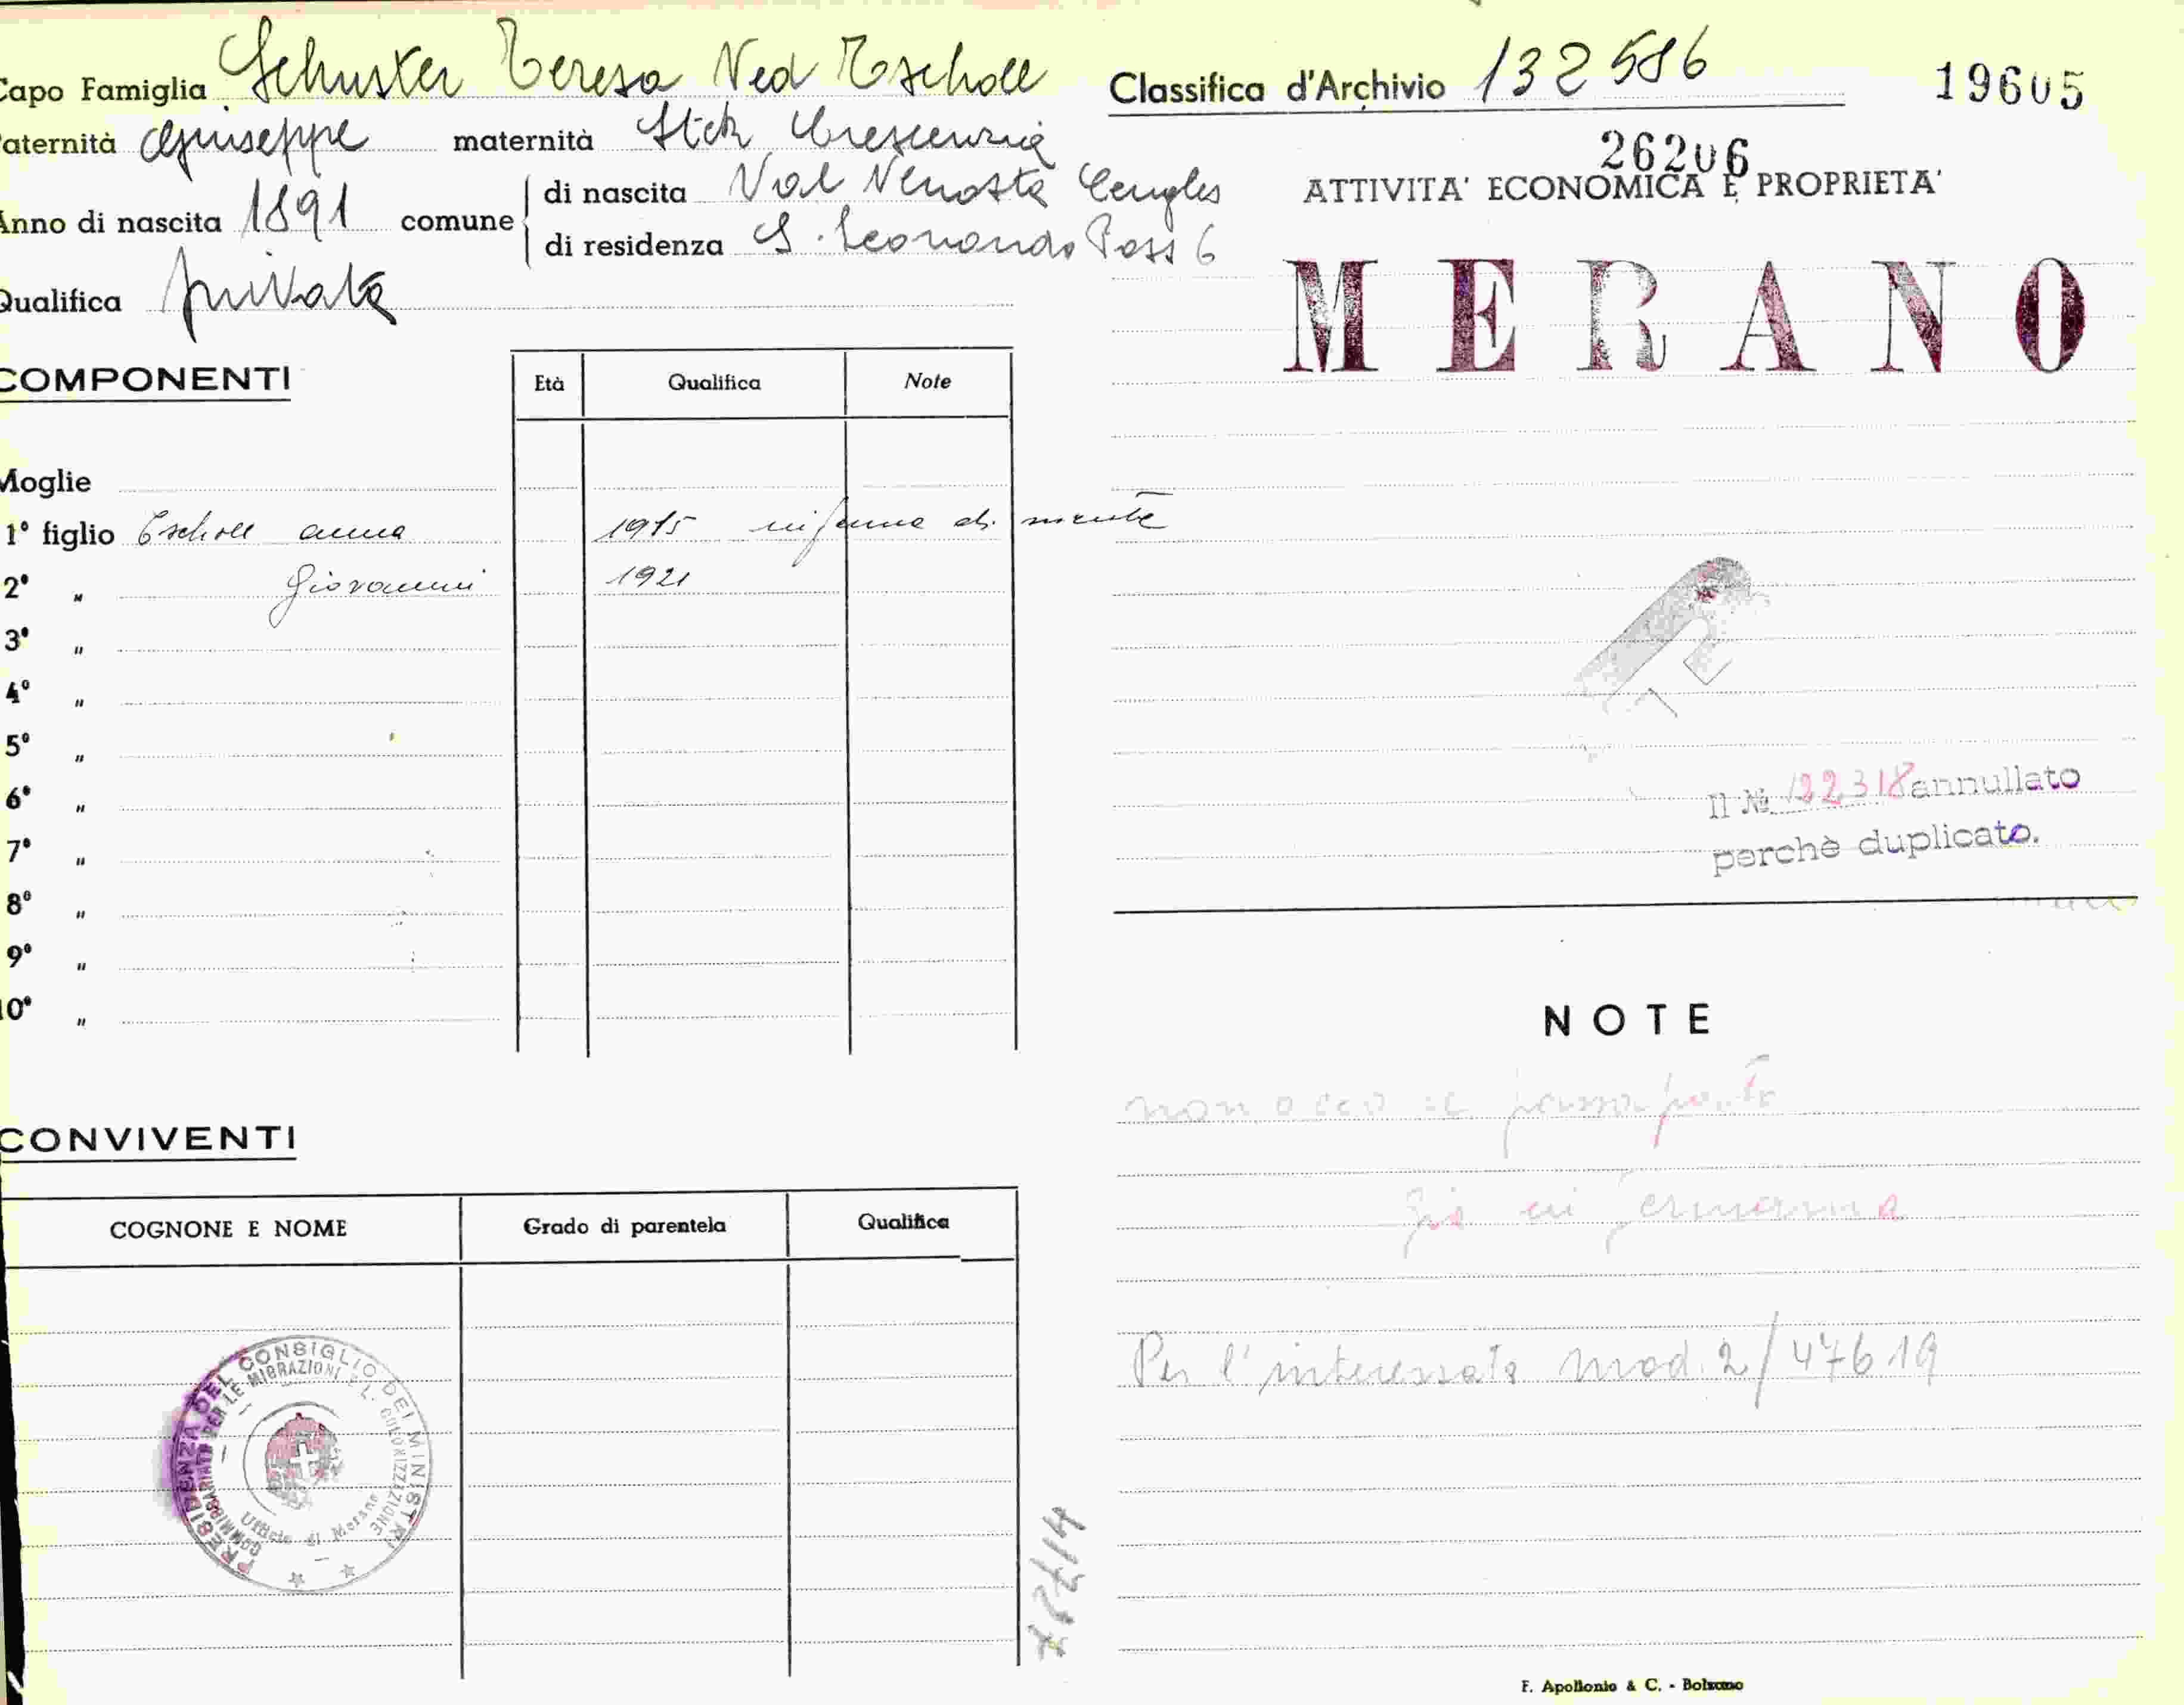 Capo Famiglia Schuster Teresa Ved Tscholl
Paternità Giuseppe maternità Stek Crescenzia
Anno di nascita 1891 comune di nascita Val Venosta Cengles
di residenza S. Leonardo Pass 6
Qualifica privata
COMPONENTI
Età Qualifica Note
Moglie
1° figlio Tscholl Anna 1915 inferma di mente
2° " Giovanni 1921
3° "
4° "
5° "
6° "
7° "
8° "
9° "
10° "
CONVIVENTI
COGNONE E NOME Grado di parentela Qualifica
PRESIDENZA DEL CONSIGLIO DEI MINISTRI
COMMISSARIATO PER LE MIGRAZIONI E L. COLONIZZAZIONE
Ufficio di Merano
Classifica d'Archivio 132586 19605
26206
ATTIVITA' ECONOMICA E PROPRIETA'
MERANO
Il № 122318 annullato
perchè duplicato.
NOTE
non passaporto
già in Germania
Per l'interessata mod. 2/47619
F. Apollonio & C. - Bolzano